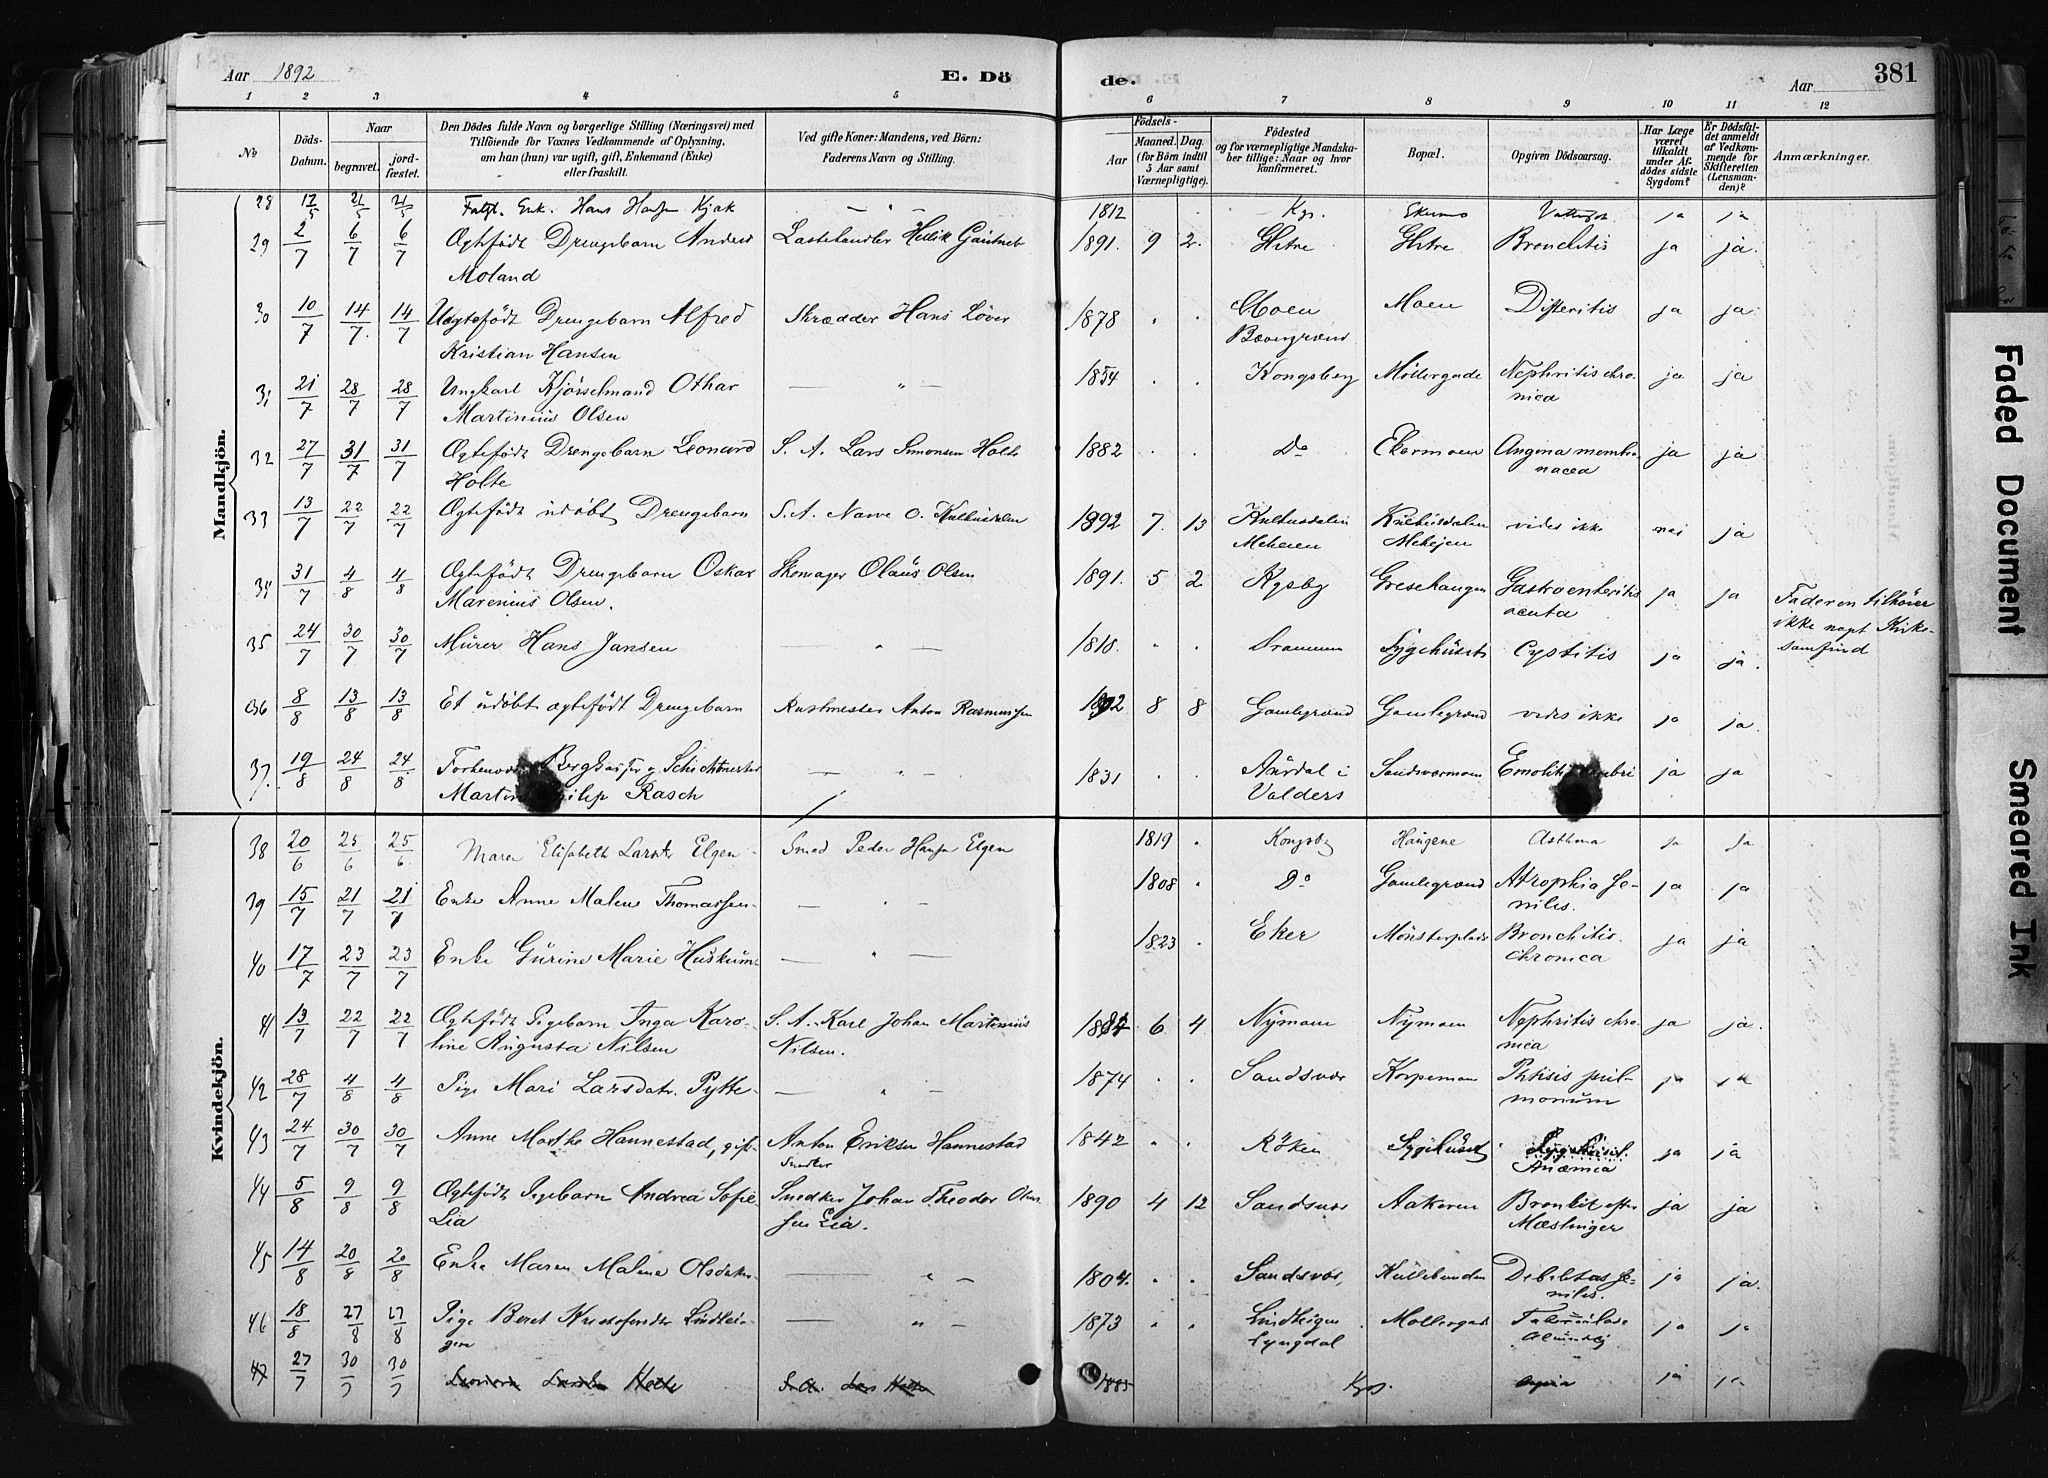 Aar 1892 E. Döde. Aar 381
1 2 3 4 5 6 7 8 9 10 11 12
No Döds-Datum. Naar begravet. jordfæstet.
Den Dödes fulde Navn og borgerlige Stilling (Næringsvei) med
Tilföiende for Voxnes Vedkommende af Oplysning,
om han (hun) var ugift, gift, Enkemand (Enke)
eller fraskilt.
Ved gifte Koner: Mandens, ved Börn:
Faderens Navn og Stilling.
Födsels-
Aar Maaned. Dag.
(for Börn indtil
5 Aar samt
Værnepligtige).
Födested
og for værnepligtige Mandska-
ber tillige: Naar og hvor
konfirmeret.
Bopæl.
Opgiven Dödsaarsag.
Har Læge
været
tilkaldt
under Af-
dödes sidste
Sygdom?
Er Dödsfal-
det anmeldt
af Vedkom-
mende for
Skifteretten
(Lensman-
den)?
Anmærkninger.
Mandkjön.
28 17/5 21/5 21/5 Enk. Hans Kjøk 1812 Kgs. ja ja
29 2/7 6/7 6/7 Ægtefödt Drengebarn Anders 1891. 9 2. Bronchitis ja ja.
Moland
30 10/7 14/7. 14/7 Uægtefödt Drengebarn Alfred Skrædder Hans Löver 1878 Moen Moen Difteritis ja ja
Kristian Hansen
31 21/7 28/7 28/7 Ungkarl Kjörselmand Othar 1854 Kongsberg Möllergade Nephritis chro- ja ja
Martinius Olsen nica
32 27/7 31/7 31/7 Ægtefödt Drengebarn Leonard S. A. Lars Simonsen Holte 1882 Do Ekermoen Angina membra- ja ja
Holte nacea
33 13/7 22/7 22/7 Ægtefödt udöbt Drengebarn S. A. Narve O. 1892 7. 13 vides ikke nei ja
34 31/7 4/8 4/8 Ægtefödt Drengebarn Oskar Skomager Olaus Olsen 1891. 5 2 Kgsbg Gresehaugen Gastroenteritis ja ja Faderen tilhörer
Marenius Olsen. acuta ikke noget Kirke-
35 24/7 30/7 30/7 Murer Hans Jansen 1818. Drammen Sygehuset Cystitis ja ja. samfund
36 8/8 13/8 13/8 Et udöbt ægtefödt Drengebarn Rustmester Anton Rasmussen 1892 8 8 Gamlegrænd Gamlegrænd vides ikke ja ja.
37. 19/8 24/8 24/8. og Schichtmester 1831 Aardal i ja ja
Martin Rasch Valders
Kvindekjön.
38 20/6 25/6 25/6 Maren Elisabeth Larsdtr Elgen Smed Peder Elgen 1819 Kongsbg Haugene Asthma ja ja
39 15/7 21/7 21/7 Enke Anne Malene Thomassen 1808 Do Gamlegrænd Atrophia se- ja ja
niles.
40 17/7 23/7 23/7 Enke Gurine Marie Huskum 1823 Eker Mönsterplads Bronchitis ja ja
chronica
41 13/7 22/7 22/7 Ægtefödt Pigebarn Inga Karo- S. A. Karl Johan Martinius 6. 4 Nymoen Nymoen Nephritis chro- ja ja.
line Augusta Nilsen Nilsen. nica
42 28/7 4/8 4/8 Pige Mari Larsdatr. Pytte 1874 Sandsvær Korpemoen Phtisis pul- ja ja
monum
43 24/7 30/7 30/7 Anne Marthe Hannestad, gift Anton Eriksen Hannestad 1842 Röken Sygehuset Anæmia ja ja
44 5/8 9/8 9/8 Ægtefödt Pigebarn Andrea Sofie Snedker Johan Theodor 1890 4 12 Sandsvær Aakeren Bronkit efter ja ja
Lia Lia. Mæslinger
45 14/8 20/8 20/8 Enke Maren Malene Olsdatr 1804. Sandsvær, Debilitas se- ja ja.
niles.
46 18/8 27/8 27/8 Pige Beret 1873 Möllergade ja ja
Lyngdal
47 27/7 30/7 30/7 Holte 1885 Kgs. Angina ja ja
Faded Document
Smeared Ink